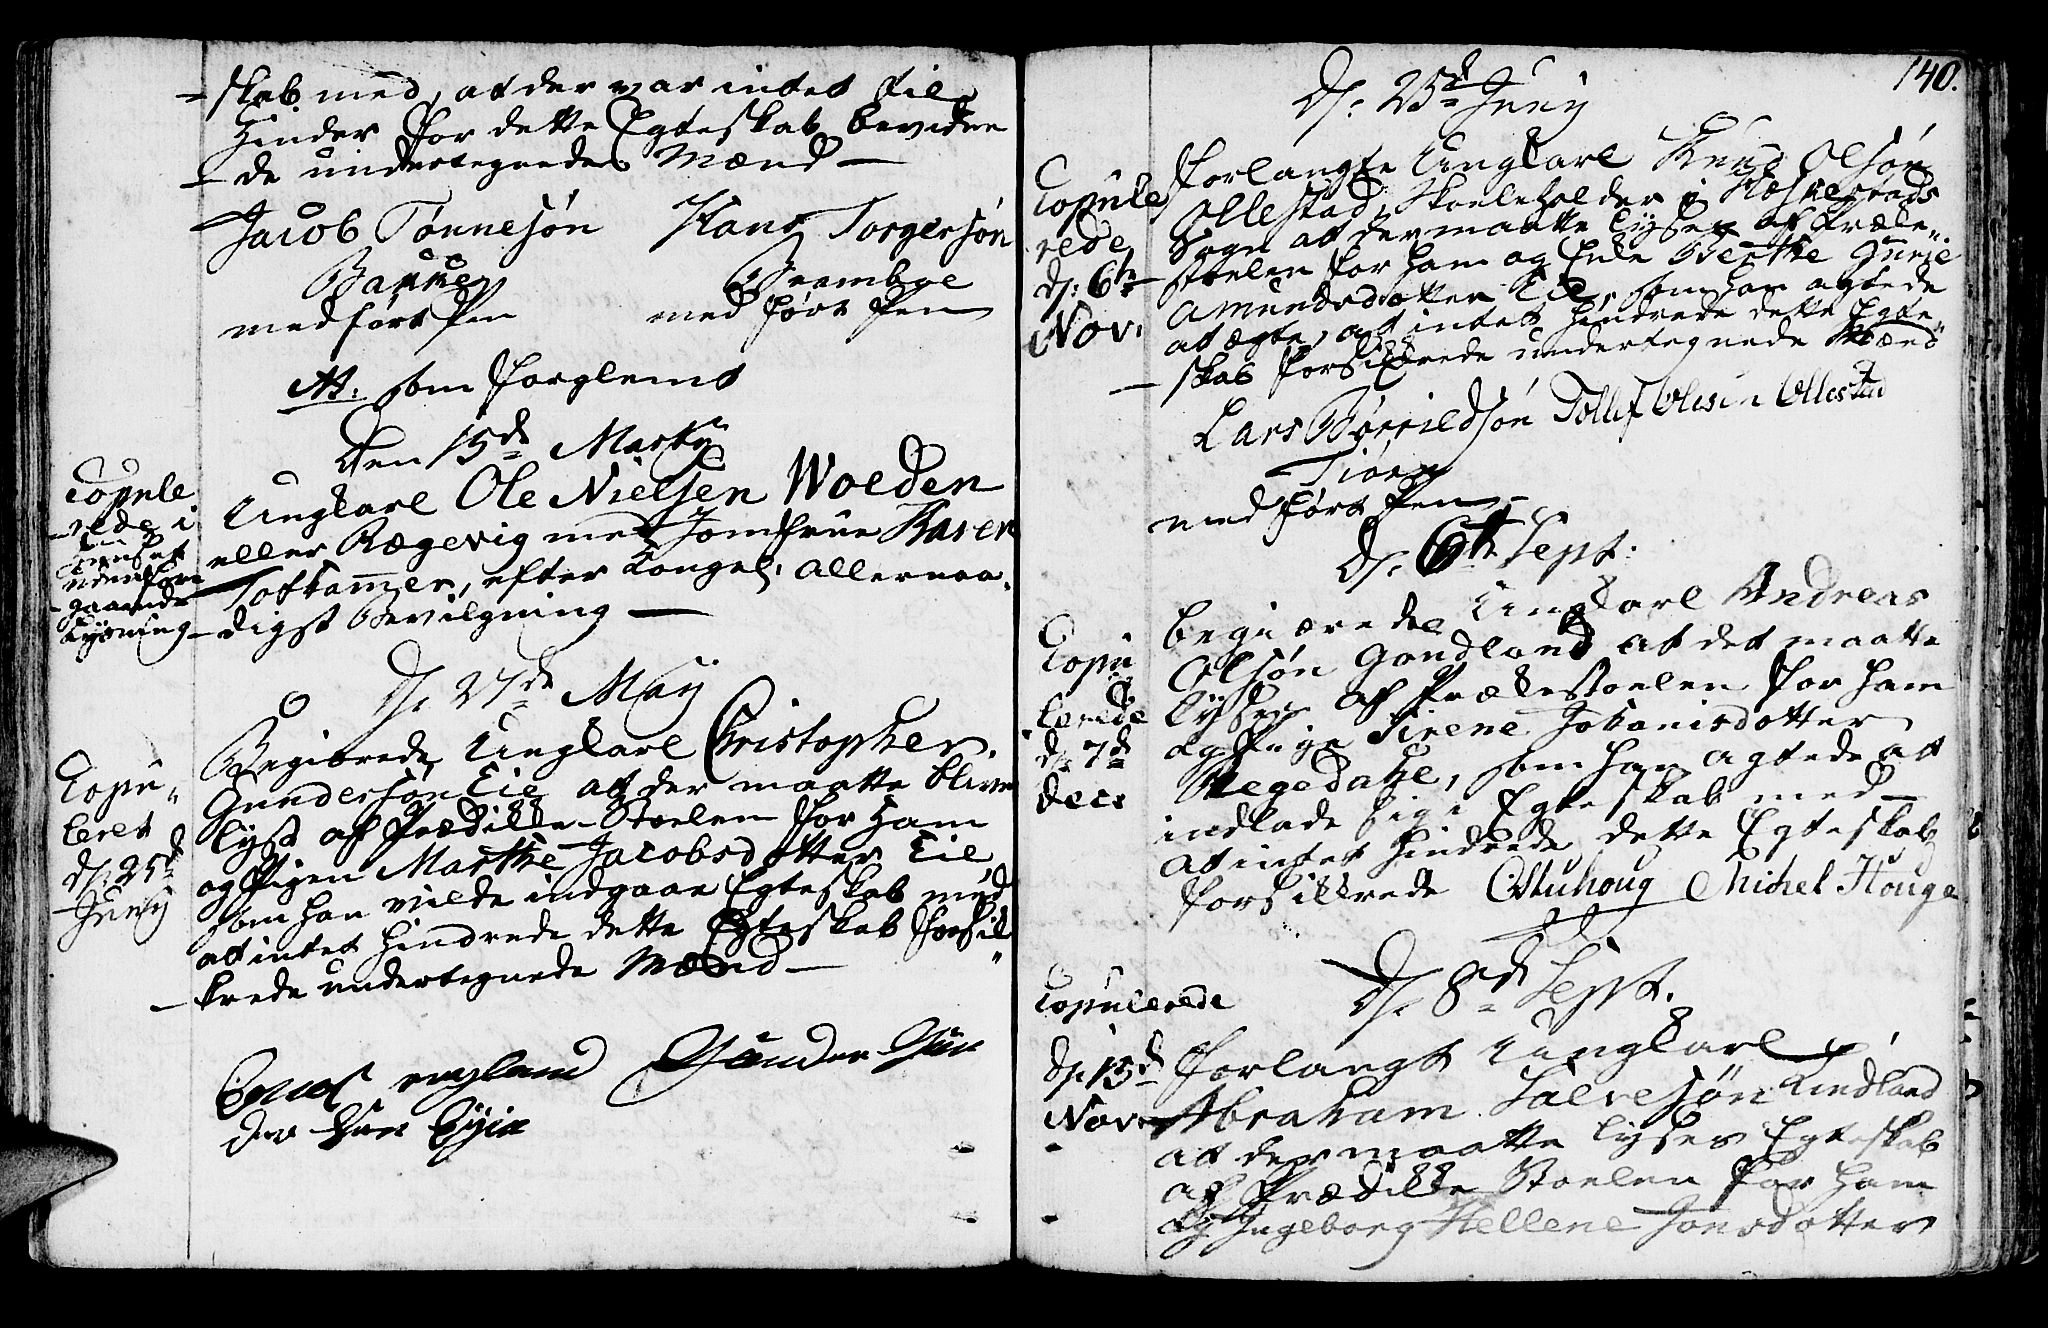 skab med, at der var intet til
Hinder for dette Egteskab bevidne
de undertegnede Mænd
Jacob Tønnesøn Hans Torgersøn
Bakke Bramboe
med ført Pen med ført Pen
NB: som forglemt
Den 15de Marty
Copule
rede i
Huuset
uden fore
gaaende
Lysning
Ungkarl Ole Nielsen Woeden
eller Rægevig med Jomfrue Karen
Totkammer, efter Kongel: allernaa
digst Bevilgning
D: 27de Maij
Copu
leret
d: 25de
Junij
Begierede Ungkarl Christopher
Gundersøn Eie at der maatte blive
lyst af Prædikke-Stoelen for Ham
og Pigen Marthe Jacobsdotter Eie
som han vilde indgaae Egteskab med
at intet hindrede dette Egteskab forsik
krede undertegnede Mænd
england Gunder
140.
D: 25de Junij
Copule
rede
d: 6te
Nov:
Forlangte Ungkarl Knud Olsøn
Ollestad, Skoleholder i Heskestads
Sogn at der maatte lyses af Præke
stoelen for ham og Enke Berthe Gurie
Amundsdotter Eie, som han agtede
at ægte, at intet hindrede dette Egte
skab forsikkrede undertegnede Mænd
Lars Tollef Olesen Ollestad
Tiørn
med ført Pen
D: 6te Sept:
Copu
lerede
d: 7de
Decr
begierede Ungkarl Andreas
Olsøn Gondland at det maatte
lyses af Prækestoelen for ham
og Pige Sirene Johanisdotter
Hegedahl, som han agtede at
indlade sig i Egteskab med
at intet hindrede dette Egteskab
forsikkrede OStuhoug Michel Houge
D: 8de Sept.
Copulerede
d: 15de
Nov:
Forlangt Ungkarl
Abraham Salvesøn Lindland
at der maatte lyses Egteskab
af Prædikke Stoelen for ham
og Ingeborg Hellene Jonsdotter